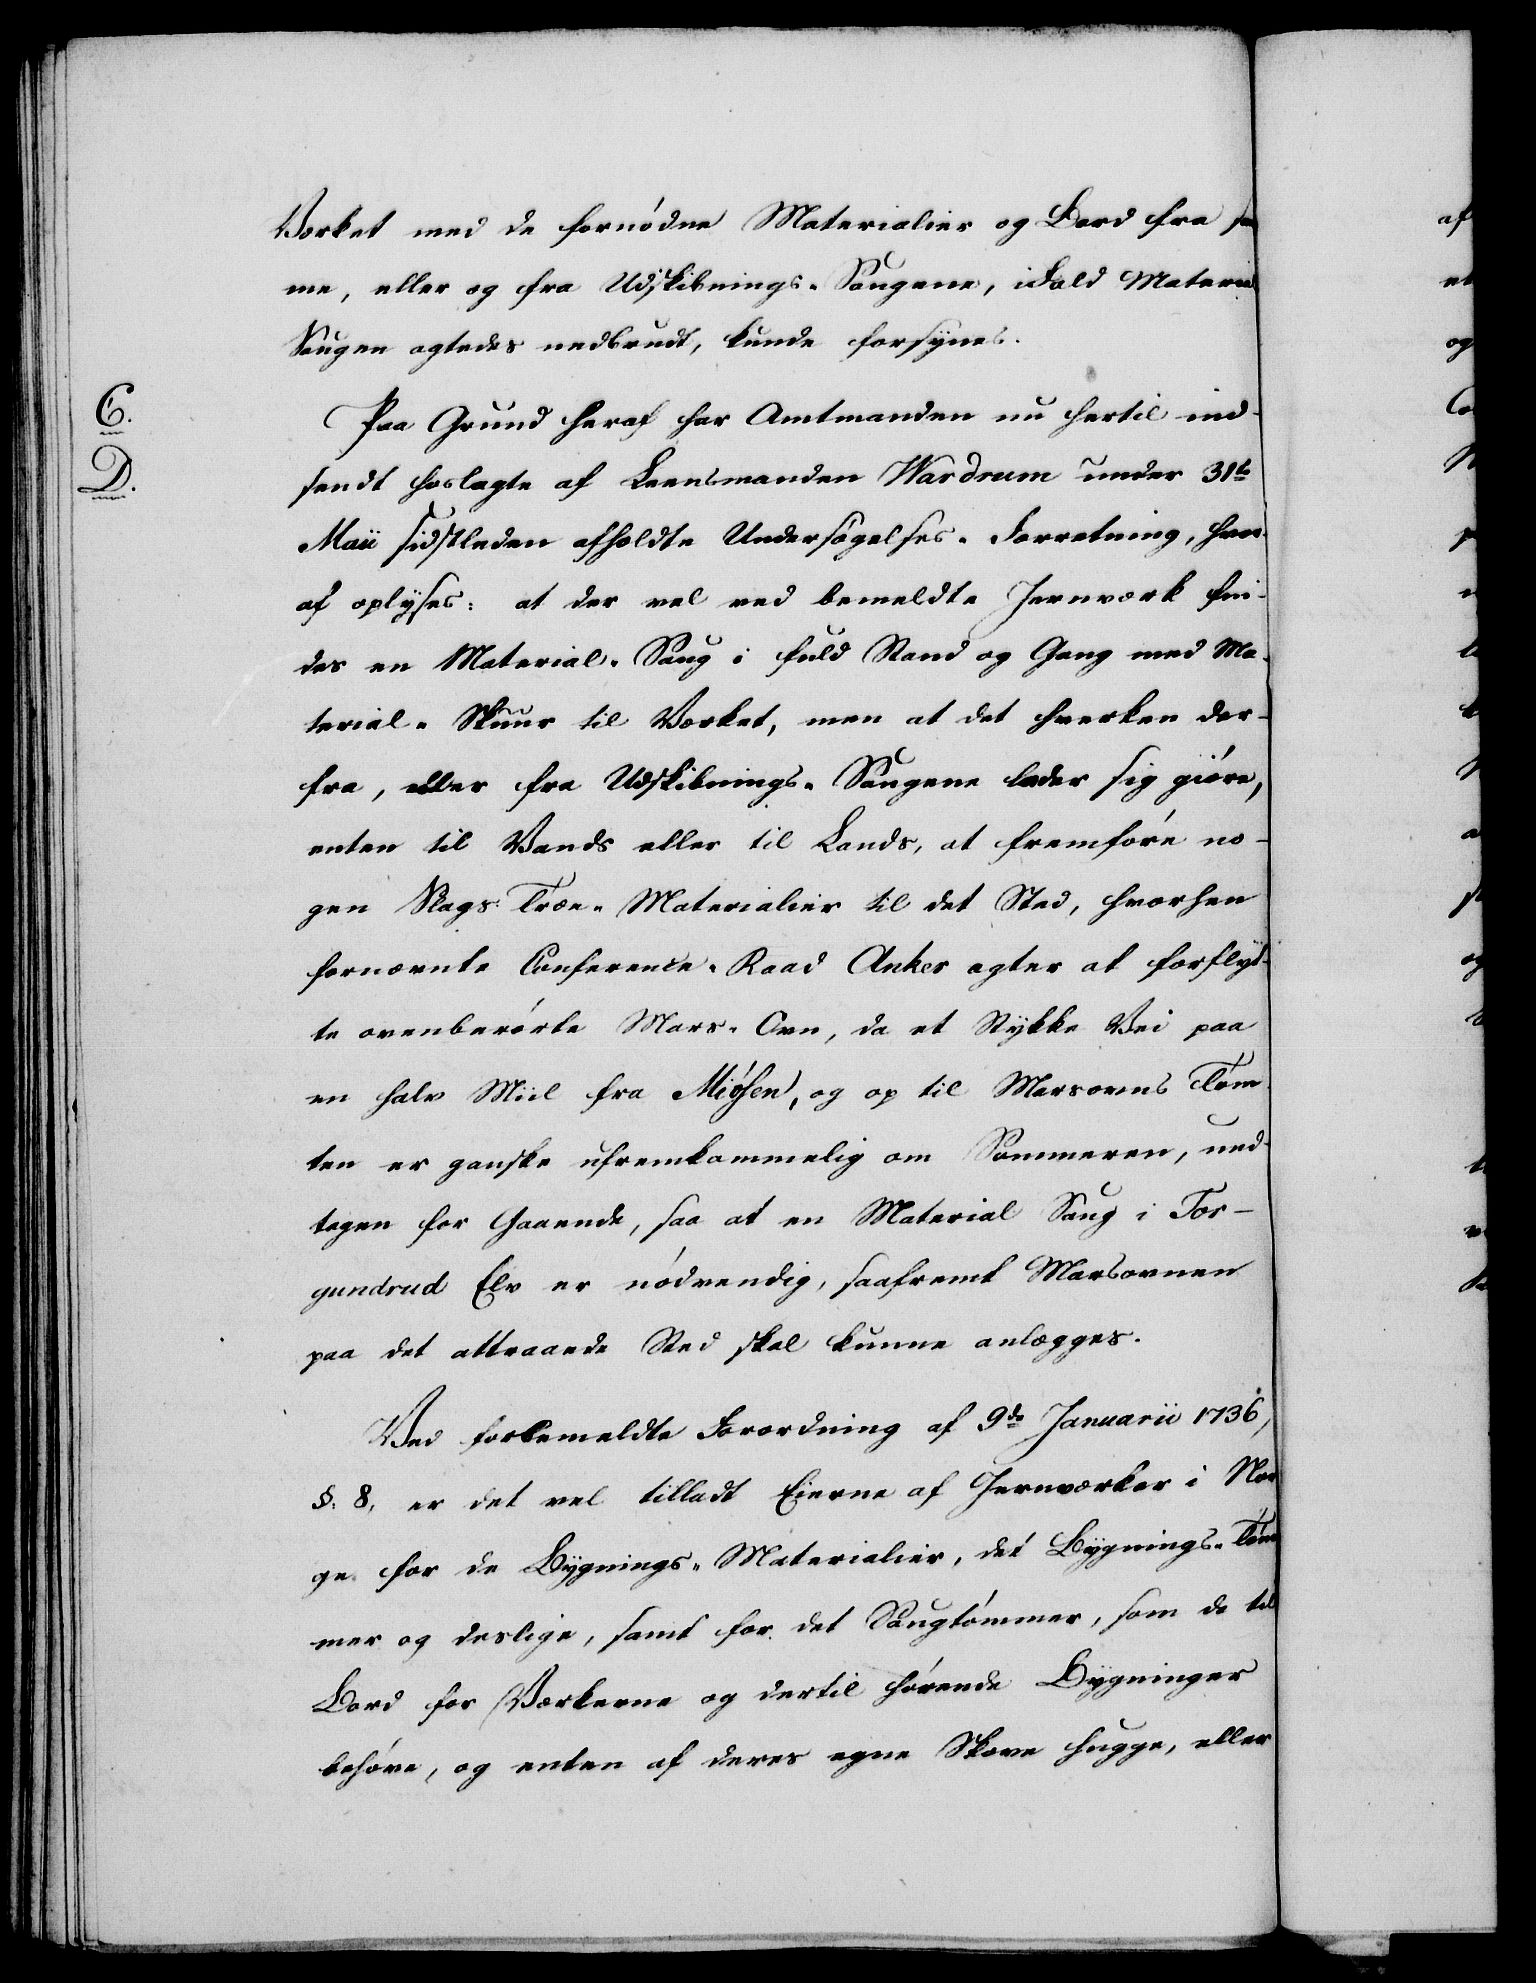 Værket med de fornødne Materialier og Bord fra sa
me, eller og fra Udskibnings-Saugene, ifald Material
Saugen agtedes nedbrudt, kunde forsynes.
C.
D.
Paa Grund heraf har Amtmanden nu hertil ind-
sendt hoslagte af Leensmanden Wardrum under 31te
Maii sidstleden afholdte Undersøgelses-Forretning, hvor-
af oplyses: at der vel ved bemeldte Jernværk fin-
des en Material-Saug i fuld Stand og Gang med Ma-
terial-Skuur til Værket, men at det hverken der-
fra, eller fra Udskibnings-Saugene lader sig giøre,
enten til Vands eller til Lands, at fremføre no-
gen Slags Træe-Materialier til det Sted, hvorhen
fornævnte Conference-Raad Anker agter at forflyt-
te ovenberørte Mars-Ovn, da et Stykke Vei paa
en halv Miil fra Miøsen, og op til Marsovns Tom-
ten er ganske ufremkommelig om Sommeren, und-
tagen for Gaaende, saa at en Material Saug i Tor-
gundrud Elv er nødvendig, saafremt Marsovnen
paa det attraaede Sted skal kunne anlægges.
Ved forbemeldte Forordning af 9de Januarii 1736,
§. 8, er det vel tilladt Eierne af Jernværker i Nor
ge for de Bygnings-Materialier, det Bygnings-Tøm
mer og deslige, samt for det Saugtømmer, som de til
Bord for Værkerne og dertil hørende Bygninger
behøve, og enten af deres egne Skove hugge, eller